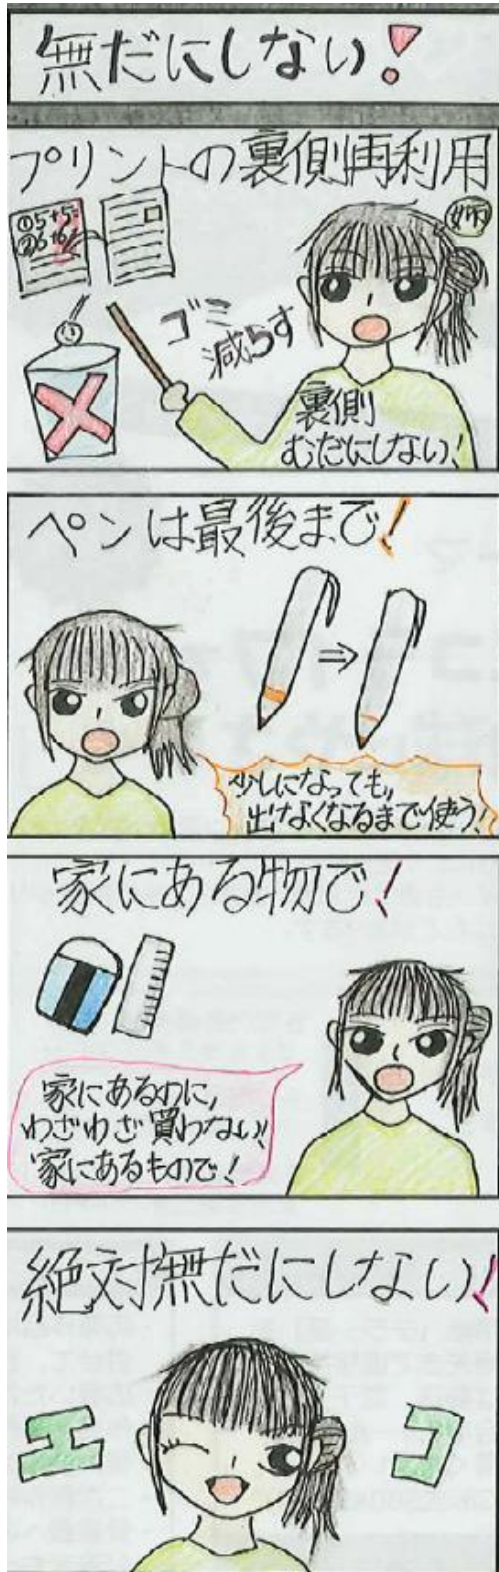 無だにしない!
プリントの裏側再利用
姉
①5+5=
②6+6=
ゴミ
減らす
裏側
むだにしない!
ペンは最後まで!
少しになっても,,
出なくなるまで使う!
家にある物で!
家にあるのに,
わざわざ買わない!
家にあるもので!
絶対無だにしない!
エコ